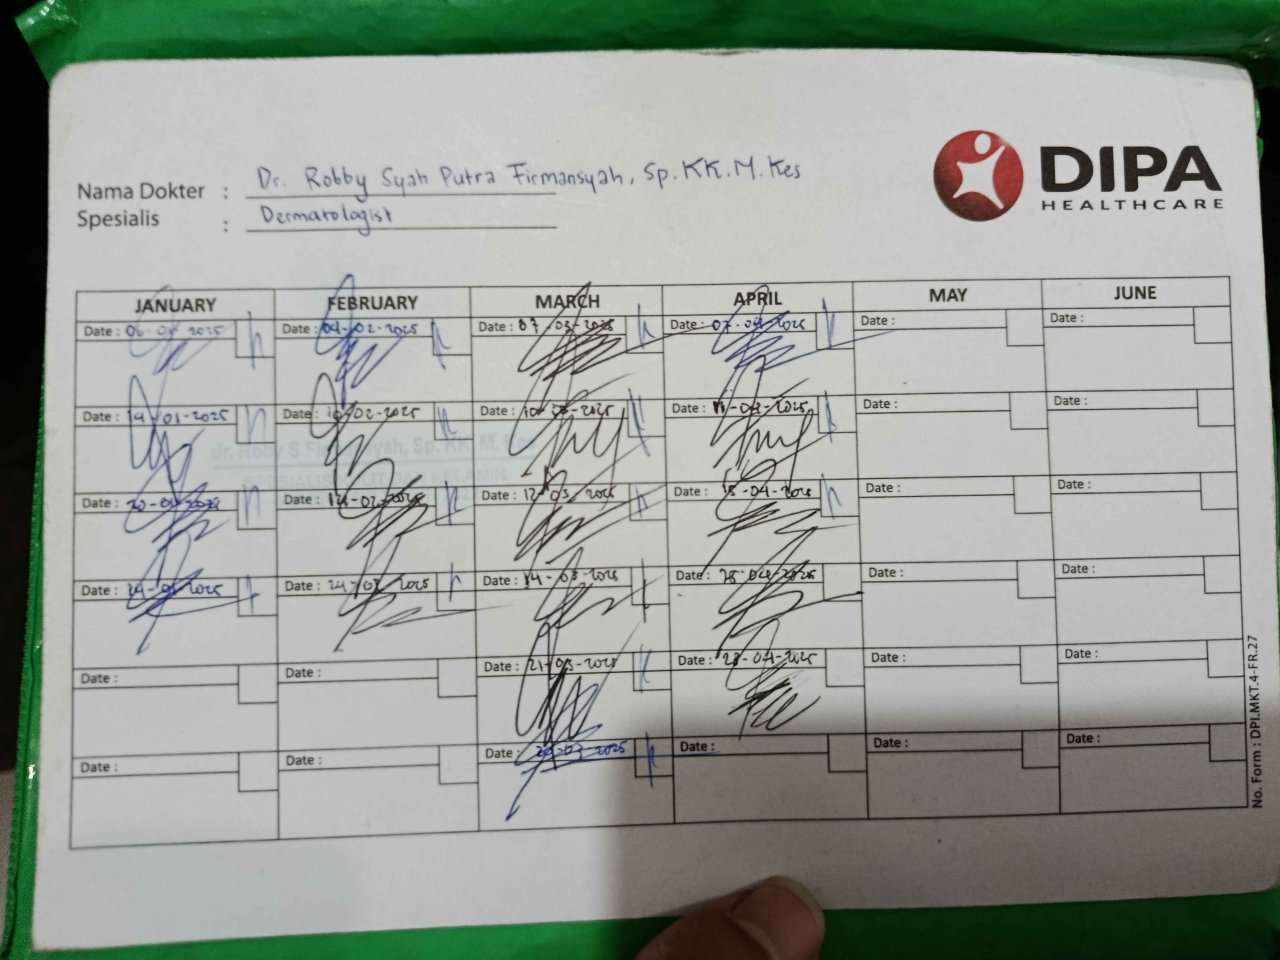 DIPA
HEALTHCARE
Nama Dokter : Dr. Robby Syah Putra Firmansyah, Sp.KK.M.Kes
Spesialis : Dermatologist
JANUARY FEBRUARY MARCH APRIL MAY JUNE
Date : 2025 Date : 04-02-2025 Date : 07-03-2025 Date : 07-04-2025 Date : Date :
Date : 14-01-2025 Date : 10-02-2025 Date : 10-03-2025 Date : 11-04-2025 Date : Date :
Date : Date : Date : 12-03-2025 Date : 15-04-2025 Date : Date :
Date : 2025 Date : 2025 Date : 14-03-2025 Date : 2025 Date : Date :
Date : Date : Date : 21-03-2025 Date : 28-04-2025 Date : Date :
Date : Date : Date : 2025 Date : Date : Date :
No. Form : DPI.MKT.4-FR.27